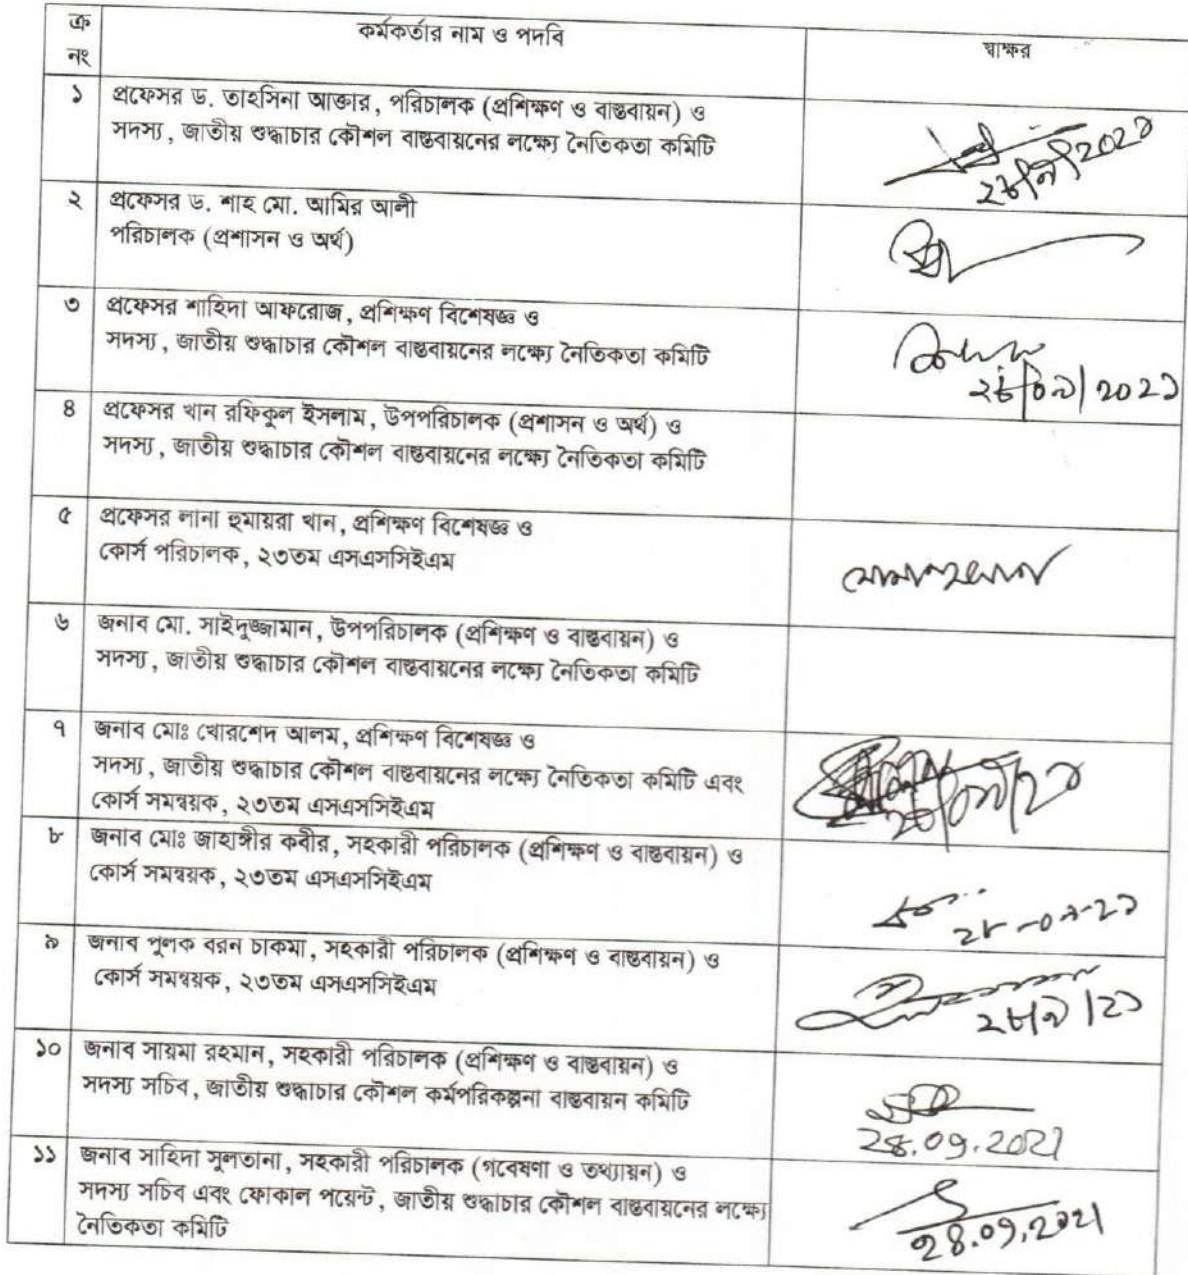 ক্র নং কর্মকর্তার নাম ও পদবি স্বাক্ষর
১ প্রফেসর ড. তাহসিনা আক্তার, পরিচালক (প্রশিক্ষণ ও বাস্তবায়ন) ও
সদস্য, জাতীয় শুদ্ধাচার কৌশল বাস্তবায়নের লক্ষ্যে নৈতিকতা কমিটি
২৮/৯/২০২১
২ প্রফেসর ড. শাহ মো. আমির আলী
পরিচালক (প্রশাসন ও অর্থ)
৩ প্রফেসর শাহিদা আফরোজ, প্রশিক্ষণ বিশেষজ্ঞ ও
সদস্য, জাতীয় শুদ্ধাচার কৌশল বাস্তবায়নের লক্ষ্যে নৈতিকতা কমিটি
২৮/০৯/২০২১
৪ প্রফেসর খান রফিকুল ইসলাম, উপপরিচালক (প্রশাসন ও অর্থ) ও
সদস্য, জাতীয় শুদ্ধাচার কৌশল বাস্তবায়নের লক্ষ্যে নৈতিকতা কমিটি
৫ প্রফেসর লানা হুমায়রা খান, প্রশিক্ষণ বিশেষজ্ঞ ও
কোর্স পরিচালক, ২৩তম এসএসসিইএম
৬ জনাব মো. সাইদুজ্জামান, উপপরিচালক (প্রশিক্ষণ ও বাস্তবায়ন) ও
সদস্য, জাতীয় শুদ্ধাচার কৌশল বাস্তবায়নের লক্ষ্যে নৈতিকতা কমিটি
৭ জনাব মোঃ খোরশেদ আলম, প্রশিক্ষণ বিশেষজ্ঞ ও
সদস্য, জাতীয় শুদ্ধাচার কৌশল বাস্তবায়নের লক্ষ্যে নৈতিকতা কমিটি এবং
কোর্স সমন্বয়ক, ২৩তম এসএসসিইএম
৮ জনাব মোঃ জাহাঙ্গীর কবীর, সহকারী পরিচালক (প্রশিক্ষণ ও বাস্তবায়ন) ও
কোর্স সমন্বয়ক, ২৩তম এসএসসিইএম
২৮-০৯-২১
৯ জনাব পুলক বরন চাকমা, সহকারী পরিচালক (প্রশিক্ষণ ও বাস্তবায়ন) ও
কোর্স সমন্বয়ক, ২৩তম এসএসসিইএম
২৮/৯/২১
১০ জনাব সায়মা রহমান, সহকারী পরিচালক (প্রশিক্ষণ ও বাস্তবায়ন) ও
সদস্য সচিব, জাতীয় শুদ্ধাচার কৌশল কর্মপরিকল্পনা বাস্তবায়ন কমিটি
28.09.2021
১১ জনাব সাহিদা সুলতানা, সহকারী পরিচালক (গবেষণা ও তথ্যায়ন) ও
সদস্য সচিব এবং ফোকাল পয়েন্ট, জাতীয় শুদ্ধাচার কৌশল বাস্তবায়নের লক্ষ্যে
নৈতিকতা কমিটি
28.09.2021